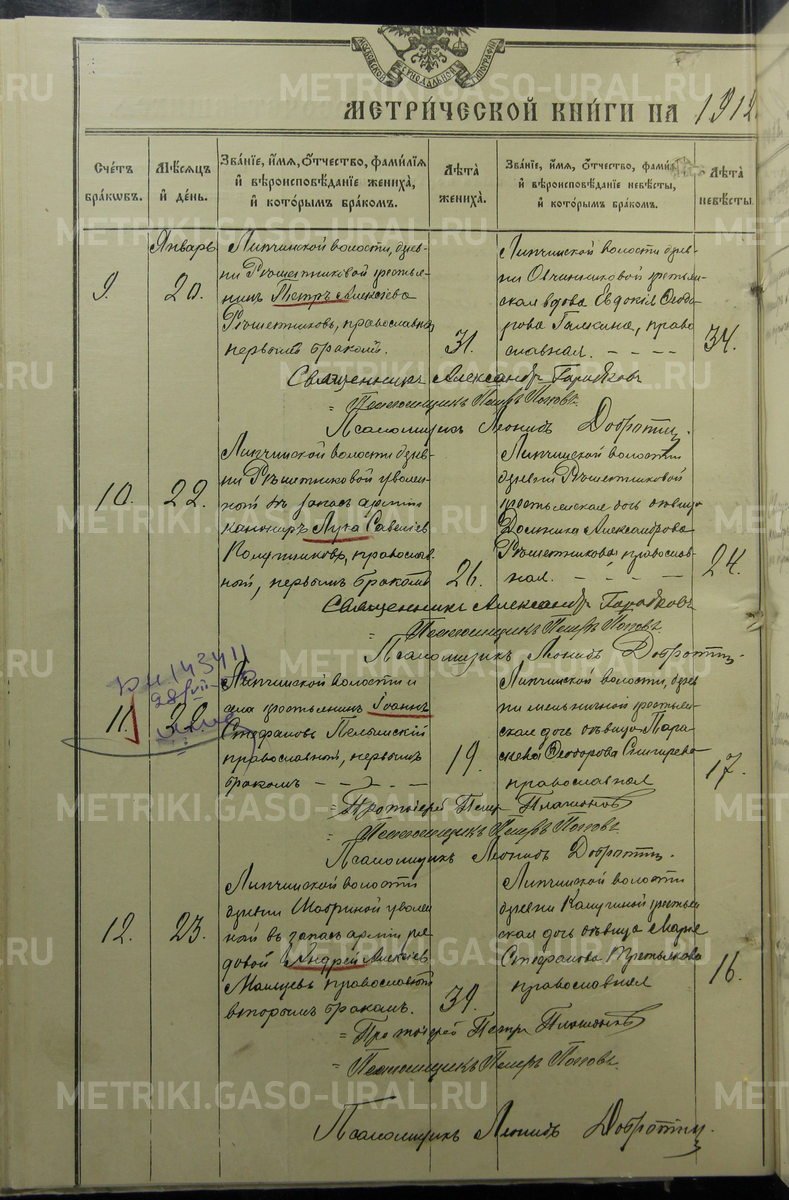 МОСКОВСКОЙ СѴНОДАЛЬНОЙ ТИПОГРАФІИ
МЕТРИ́ЧЕСКОЙ КНИ́ГИ НА 1912
Сче́тъ бра́кωвъ.
Мѣ́сяцъ и҆ де́нь.
Зва́нїе, и҆́мѧ, ѻ҆́тчество, фами́лїѧ
и҆ вѣроисповѣ́данїе жениха̀,
и҆ кото́рымъ бра́комъ.
Лѣ́та жениха̀.
Зва́нїе, и҆́мѧ, ѻ҆́тчество, фами́лїѧ
и҆ вѣроисповѣ́данїе невѣ́сты,
и҆ кото́рымъ бра́комъ.
Лѣ́та невѣ́сты.
Январь
9.
20.
Липчинской волости, дерев-
ни Рѣшетниковой крестья-
нинъ Петръ Алексѣевъ
Рѣшетниковъ, православный,
первымъ бракомъ.
31.
Липчинской волости дерев-
ни Овчинниковой крестьян-
ская вдова Евдокія Ѳеодо-
рова Галкина, право
славная. - - - -
34.
Священникъ Александръ
= Псаломщикъ Петръ Поповъ.
Псаломщикъ Леонидъ
10.
22.
Липчинской волости дерев-
ни Рѣшетниковой уволен-
ной въ запасъ арміи
канониръ Лука Савеліев
православ-
ной, первымъ бракомъ
26.
Липчинской волости
деревни Рѣшетниковой
крестьянская дочь дѣвица
Домника Александрова
Рѣшетникова православ-
ная. - - - -
24.
Священникъ Александръ
= Псаломщикъ Петръ Поповъ.
Псаломщикъ Леонидъ
143411
11.
22.
Липчинской волости и
села крестьянинъ Іоаннъ
Стефановъ Пелымскій
православный, первымъ
бракомъ - - -
19.
Липчинской волости, дерев
ни Мельничной крестьян-
ская дочь дѣвица Пара-
скева Ѳеодорова Снигирева
православная
17.
= Протоіерей Петръ Платоновъ
= Псаломщикъ Петръ Поповъ.
Псаломщикъ Леонидъ
12.
23.
Липчинской волости
деревни Шабриной уволен
ной въ запасъ арміи ря-
довой Андрей Алексіевъ
православный
вторымъ бракомъ.
39.
Липчинской волости
деревни Калугиной крестьян
ская дочь дѣвица Марія
Стефанова Третьякова
православная
16.
= Протоіерей Петръ Платоновъ
= Псаломщикъ Петръ Поповъ.
Псаломщикъ Леонидъ
METRIKI.GASO-URAL.RU